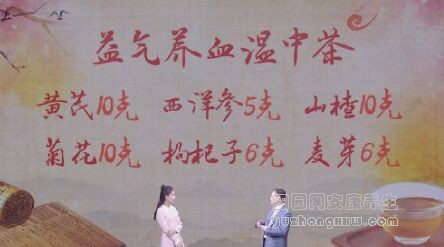 益气养血温中茶
黄芪10克 西洋参5克 山楂10克
菊花10克 枸杞子6克 麦芽6克
juzhongxxw.com